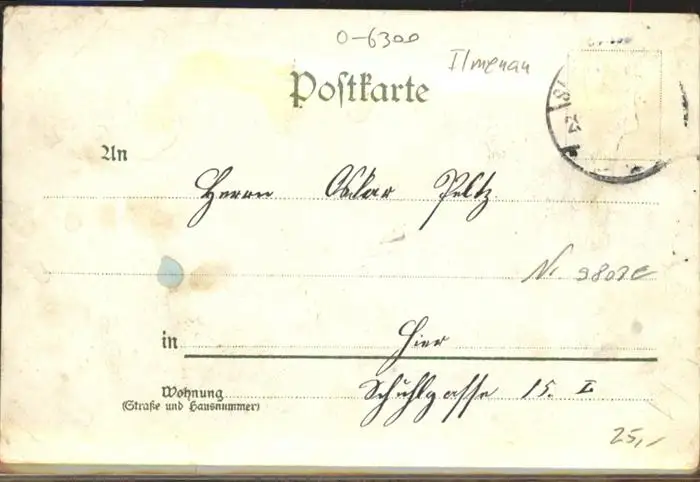 0-6300
Ilmenau
Postkarte
An
Herrn Oskar Peltz
in Hier
Wohnung
(Straße und Hausnummer)
15. I
25,-